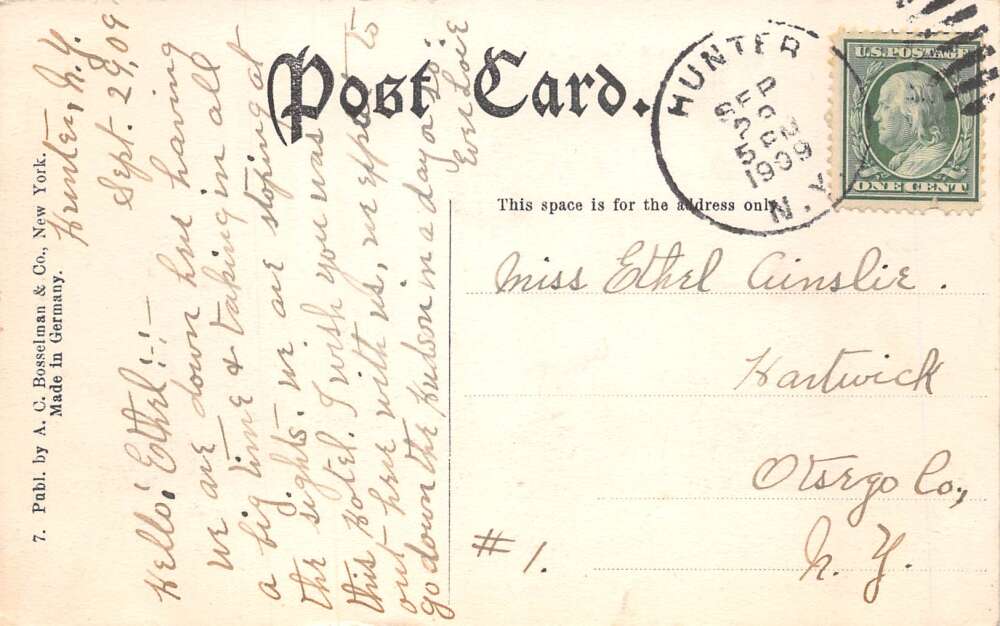 7. Publ. by A. C. Bosselman & Co., New York.
Made in Germany.
Post Card.
HUNTER
SEP
29
5 PM
1909
N.Y.
U.S. POSTAGE
ONE CENT
This space is for the address only.
Hunter, N.Y.
Sept. 29, 09
Hello! Ethel:-:-
we are down here having
a big time & taking in all
the sights. we are stoping at
this Hotel. I wish you was
out here with us, we expect to
go down the Hudson in a day or so.
Miss Ethel Ainslie.
Hartwick
Otsego Co.,
N. Y.
# 1.